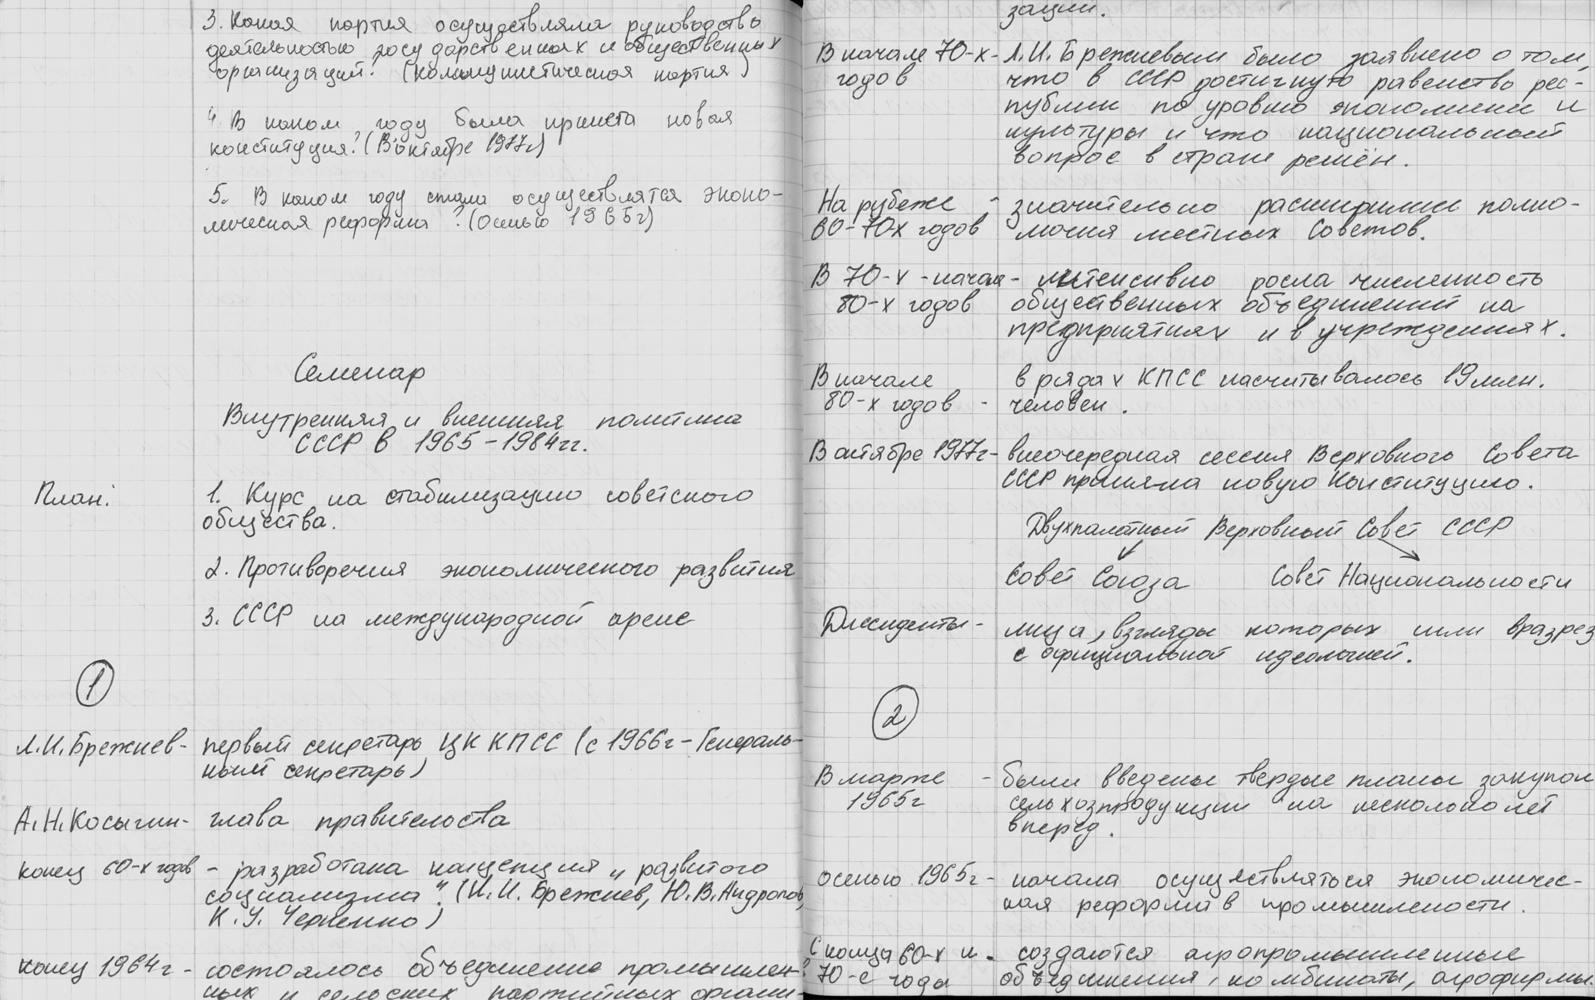 3. Какая партия осуществляла руководство
деятельностью государственных и общественных
организаций? (Коммунистическая партия)
4. В каком году была принята новая
конституция? (В октябре 1977г)
5. В каком году стала осуществлятся эконо-
мическая реформа? (Осенью 1965г)
Семенар
Внутренняя и внешняя политика
СССР в 1965-1984гг.
План:
1. Курс на стабилизацию советского
общества.
2. Противоречия экономического развития
3. СССР на международной арене
1
Л.И.Брежнев- первый секретарь ЦК КПСС (с 1966г-Генераль-
ный секретарь)
А.Н.Косыгин- глава правительства
конец 60-х годов - разработана концепция „развитого
социализма". (И.И.Брежнев, Ю.В.Андропов,
К.У.Черненко)
конец 1964г - состоялось объединение промышлен-
ных и сельских партийных органи-
зации.
В начале 70-х- Л.И.Брежневым было заявлено о том,
годов что в СССР достигнуто равенство рес-
публик по уровню экономики и
культуры и что национальный
вопрос в стране решён.
На рубеже - значительно расширились полно-
60-70х годов мочия местных Советов.
В 70-х-начале - интенсивно росла численность
80-х годов общественных объединений на
предприятиях и в учреждениях.
В начале в рядах КПСС насчитывалось 19 млн.
80-х годов - человек.
В октябре 1977г- внеочередная сессия Верховного Совета
СССР приняла новую Конституцию.
Двухпалатный Верховный Совет СССР
Совет Союза Совет Национальности
Диссиденты- лица, взгляды которых шли вразрез
с официальной идеологией.
2
В марте - были введены твердые планы закупок
1965г сельхозпродукции на несколько лет
вперед.
осенью 1965г- начала осуществляться экономичес-
кая реформа в промышлености.
С конца 60-х и - создаются агропромышленные
70-е годы объединения, комбинаты, агрофирмы